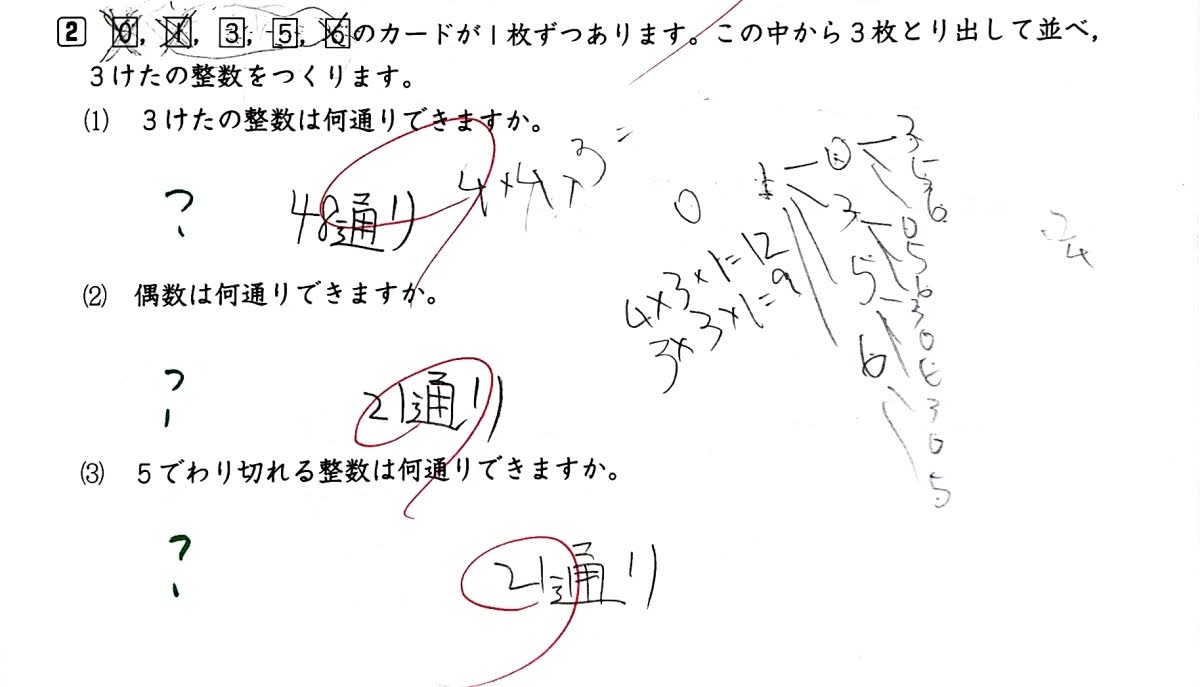 2 0, 1, 3, 5, 6のカードが1枚ずつあります。この中から3枚とり出して並べ,
3けたの整数をつくります。
(1) 3けたの整数は何通りできますか。
? 48通り 4×4×3=
0 1 0 3 5 6
3 0 5 6
5 3 0 6
6 3 0 5
4×3×1=12
3×3×1=9
24
(2) 偶数は何通りできますか。
? 21通り
(3) 5でわり切れる整数は何通りできますか。
? 21通り